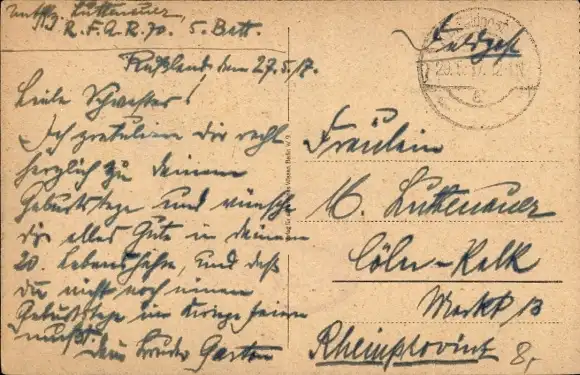 Untffz. Luttenauer,
R.F.A.R. 70. 5. Batt.
Rußland, den 27.5.17.
Liebe Schwester!
Ich gratuliere Dir recht
herzlich zu Deinem
Geburtstage und wünsche
dir alles Gute in deinem
20. Lebensjahre, und daß
Du nicht noch einen
Geburtstage im Kriege feiern
mußt.
Dein Bruder
Feldpost
Feldpost
Fräulein
M. Luttenauer
Cöln-Kalk
Markt 13
Rheinprovinz
8,